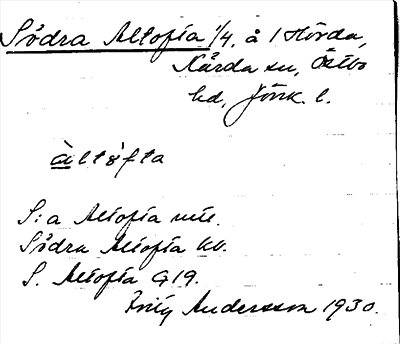 Södra Altofta 1/4, å 1 Hörda,
Kårda sn, Östbo
hd, Jönk. l.
àltófta
S:a Altofta mtl.
Södra Altofta kb.
S. Altofta G19.
Andersson 1930.